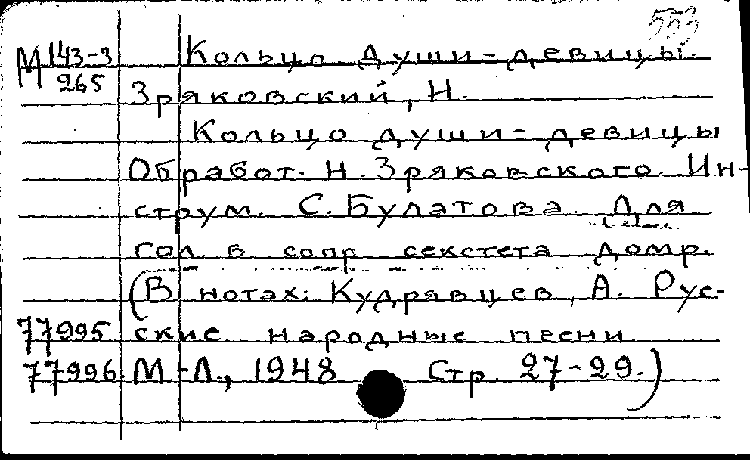 553
М 143-3 Кольцо души-девицы.
265
Зряковский, Н.
Кольцо души-девицы
Обработ. Н. Зряковского. Ин-
струм. С. Булатова Для
гол в сопр секстета домр.
(В нотах: Кудрявцев, А. Рус-
77995 ские народные песни
77996 М-Л., 1948 Стр 27-29.)